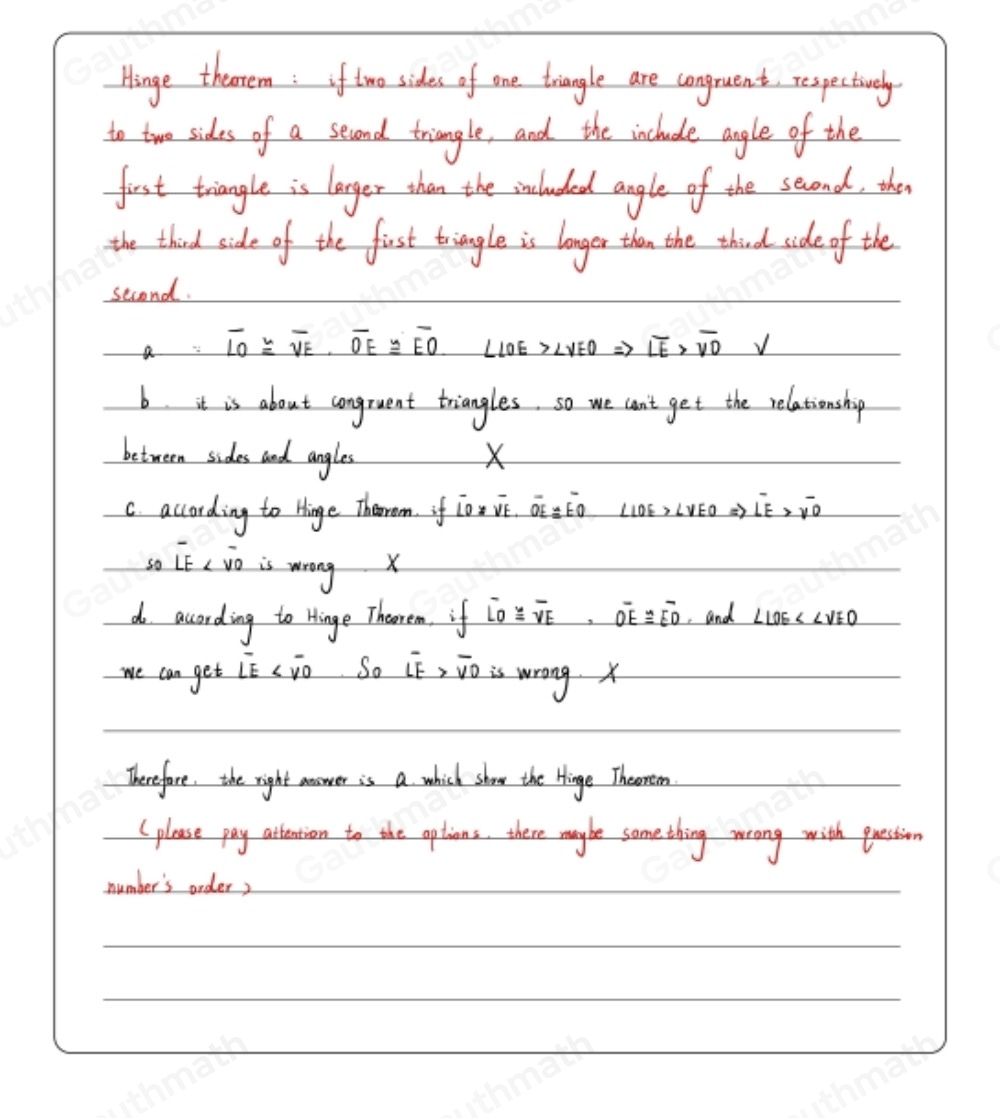 Hinge theorem : if two sides of one triangle are congruent, respectively
to two sides of a second triangle, and the include angle of the
first triangle is larger than the included angle of the second, then
the third side of the first triangle is longer than the third side of the
second.
a ∵ L̅O̅ ≅ V̅E̅ , O̅E̅ ≅ E̅O̅. ∠LOE > ∠VEO => L̅E̅ > V̅O̅ √
b. it is about congruent triangles, so we can't get the relationship
between sides and angles X
c. according to Hinge Theorem, if L̅O̅ ≅ V̅E̅, O̅E̅ ≅ E̅O̅ ∠LOE > ∠VEO => L̅E̅ > V̅O̅
so L̅E̅ < V̅O̅ is wrong . X
d. according to Hinge Theorem, if L̅O̅ ≅ V̅E̅ , O̅E̅ ≅ E̅O̅, and ∠LOE < ∠VEO
we can get L̅E̅ < V̅O̅ . So L̅E̅ > V̅O̅ is wrong. X
Therefore, the right answer is a. which show the Hinge Theorem.
(please pay attention to the options, there maybe something wrong with question
number's order)